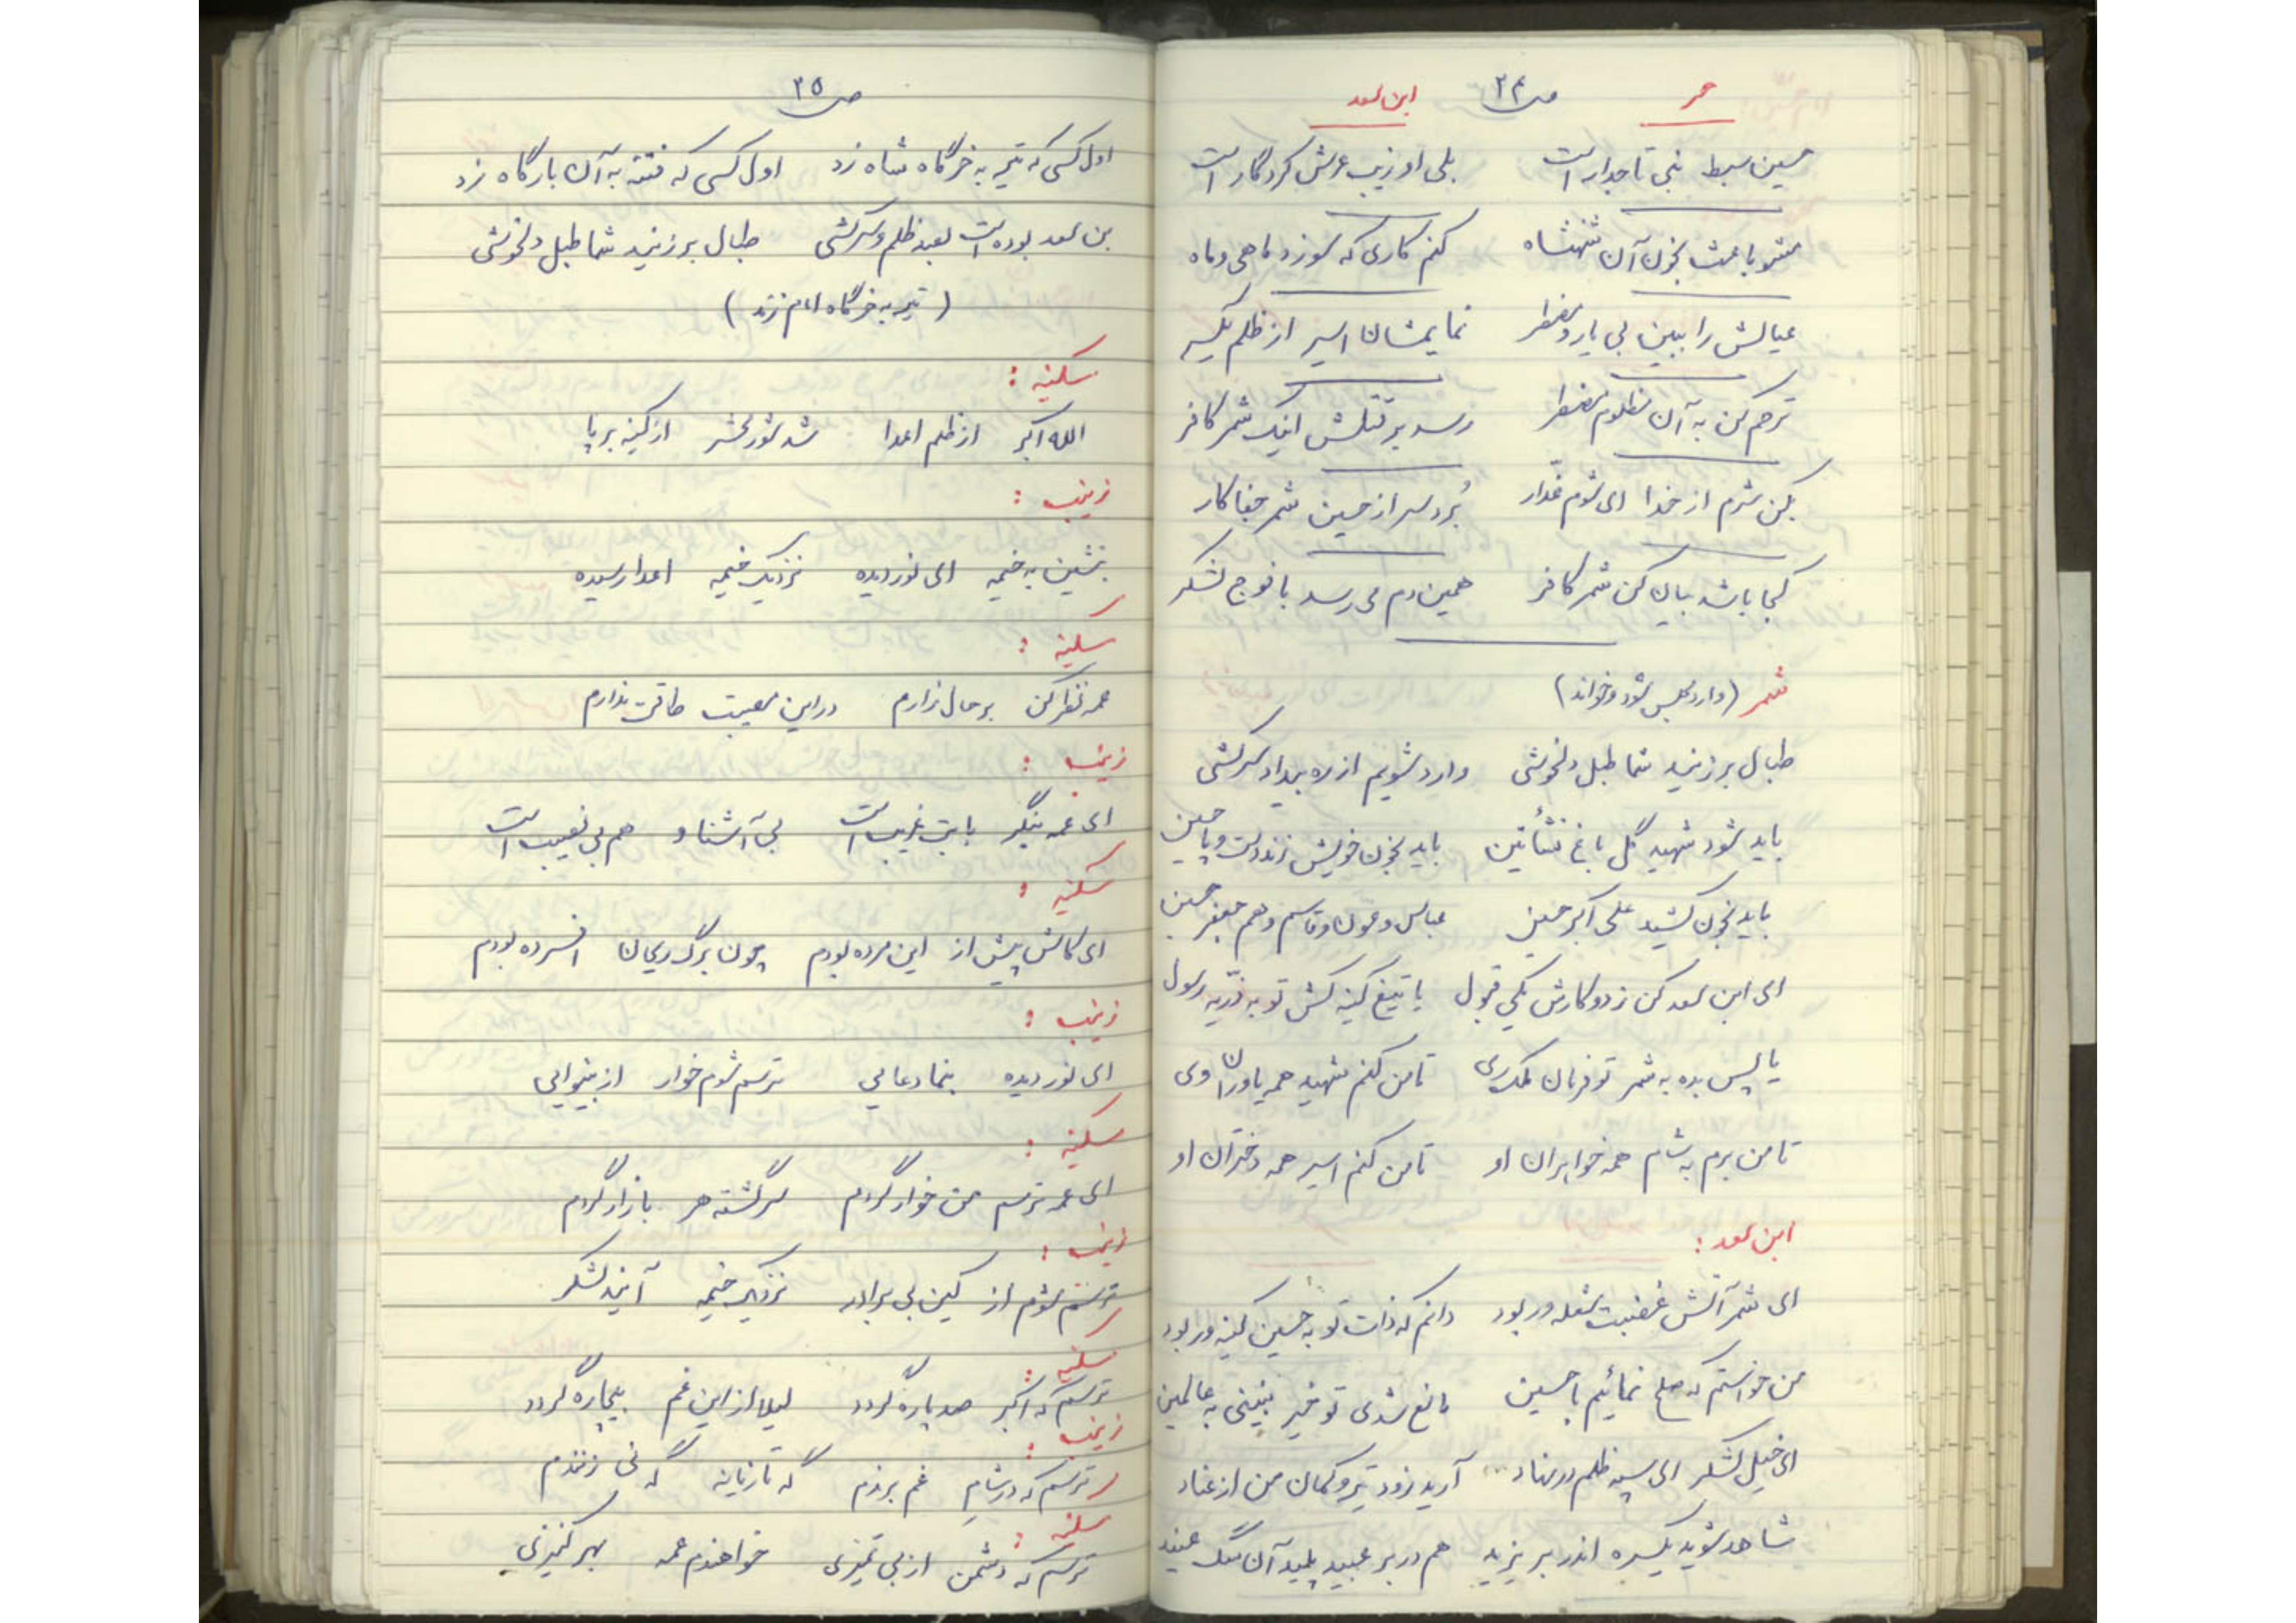 حر ص ۲۴ ابن سعد
حسین سبط نبی تاجدار است بلی او زیب عرش کردگار است
مشو باعث بخون آن شهنشاه کنم کاری که سوزد ماهی و ماه
عیالش را ببین بی یار و مضطر نمایمشان اسیر از ظلم یکسر
ترحم کن به آن مظلوم مضطر رسد بر قتلش اینک شمر کافر
بکن شرم از خدا ای شوم غدّار بُرد سر از حسین شمر جفاکار
کجا باشد بیان کن شمر کافر همین دم می رسد با فوج لشکر
شمر (وارد مجلس شود و خواند)
طبال بر زنید شما طبل دلخوشی وارد شویم از ره بیداد سرکشی
باید شود شهید گل باغ نشأتین باید بخون خویش زند دست و پا حسین
باید بخون کشید علی اکبر حسین عباس و عون و قاسم و هم جعفر حسین
ای ابن سعد کن ز دو کارش یکی قبول یا تیغ کینه کش تو به ذرّیه رسول
یا پس بده به شمر تو فرمان ملک ری تا من کنم شهید همه یاوران وی
تا من برم به شام همه خواهران او تا من کنم اسیر همه دختران او
ابن سعد :
ای شمر آتش غضبت شعله ور بود دانم که ذات تو به حسین کینه ور بود
من خواستم که صلح نمائیم با حسین مانع شدی تو خیر نبینی به عالمین
ای خیل لشکر ای سپه ظلم در نهاد آرید زود تیر و کمان من از عناد
شاهد شوید یکسره اندر بر یزید هم در بر عبید پلید آن سگ عنید
ص ۲۵
اول کسی که تیر به خرگاه شاه زد اول کسی که فتنه به آن بارگاه زد
بن سعد بوده است بعد ظلم و سرکشی طبال بر زنید شما طبل دلخوشی
(تیر به خرگاه امام زند)
سکینه :
الله اکبر از ظلم اعدا شد شور محشر از کینه برپا
زینب :
بنشین به خیمه ای نور دیده نزدیک خیمه اعدا رسیده
سکینه :
عمه نظر کن بر حال زارم در این مصیبت طاقت ندارم
زینب :
ای عمه بنگر بابت غریب است بی آشنا و هم بی نصیب است
سکینه :
ای کاش پیش از این مرده بودم چون برگ ریحان افسرده بودم
زینب :
ای نور دیده بنما دعایی ترسم شوم خوار از بینوایی
سکینه :
ای عمه ترسم من خوار گردم سرگشته هر بازار گردم
زینب :
ترسم شوم از کین بی برادر نزدیک خیمه آیند لشکر
سکینه :
ترسم که اکبر صد پاره گردد لیلا از این غم بیچاره گردد
زینب :
ترسم که در شام غم برندم گه تازیانه گه نی زنندم
سکینه :
ترسم که دشمن از بی تمیزی خواهندم عمه بهر کنیزی